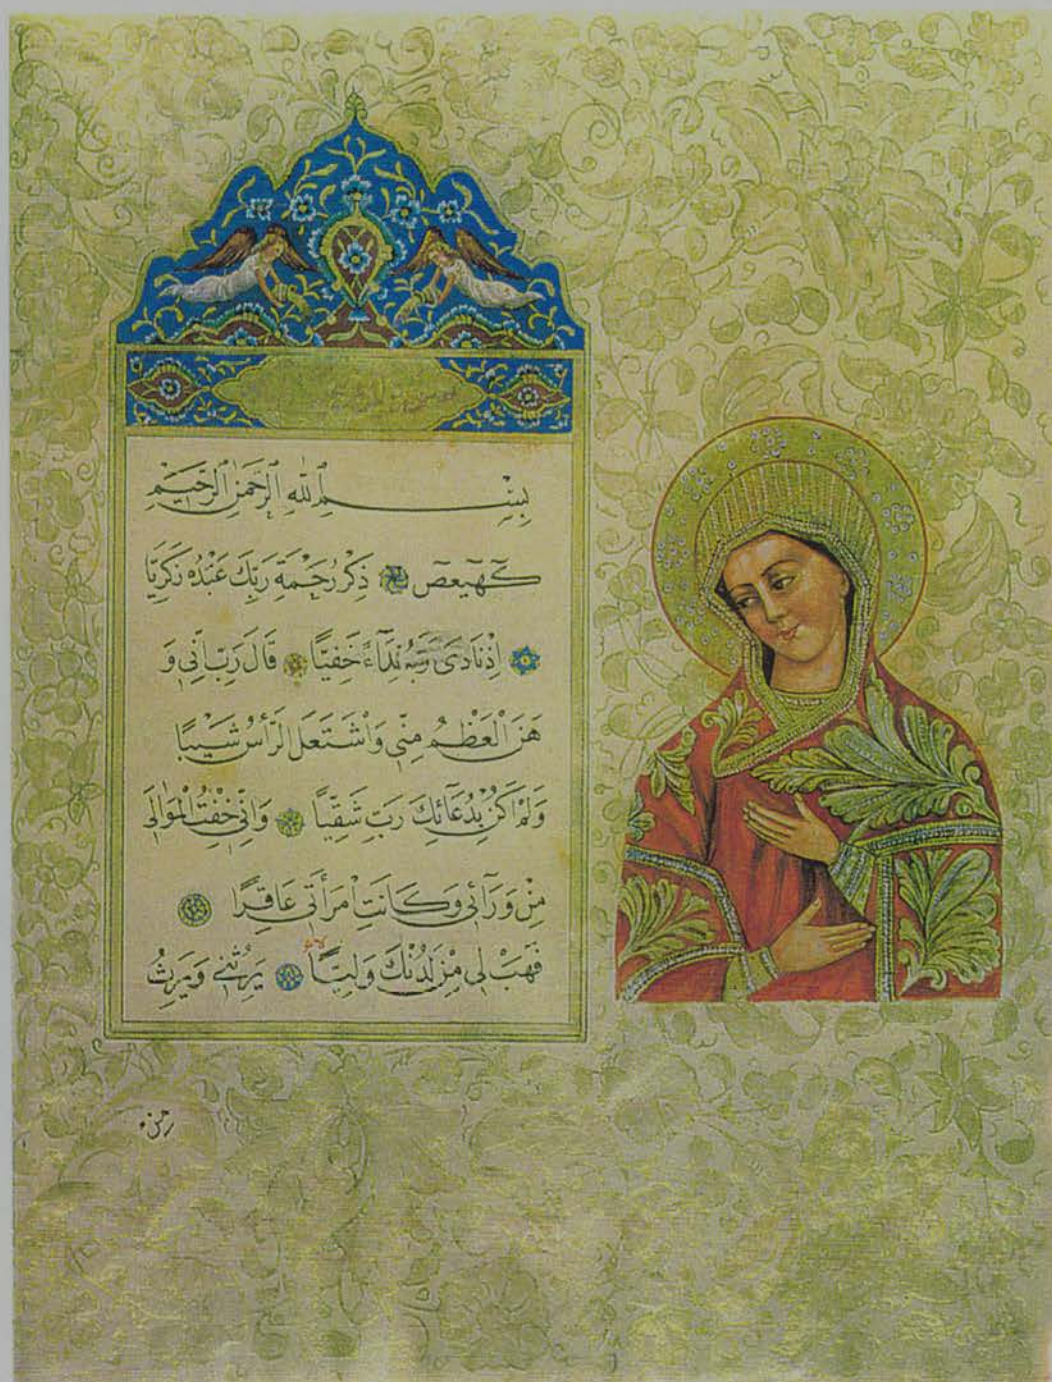 بِسْمِ ٱللّٰهِ ٱلرَّحْمٰنِ ٱلرَّحِيْمِ
كٓهٰيٰعٓصٓ ذِكْرُ رَحْمَةِ رَبِّكَ عَبْدَهُ زَكَرِيَّا
اِذْ نَادٰى رَبَّهُ نِدَٓاءً خَفِيًّا قَالَ رَبِّ اِنّٖى وَ
هَنَ الْعَظْمُ مِنّٖى وَاشْتَعَلَ الرَّأْسُ شَيْبًا
وَلَمْ اَكُنْ بِدُعَٓائِكَ رَبِّ شَقِيًّا وَاِنّٖى خِفْتُ الْمَوَالِىَ
مِنْ وَرَٓائٖى وَكَانَتِ امْرَأَتٖى عَاقِرًا
فَهَبْ لٖى مِنْ لَدُنْكَ وَلِيًّا يَرِثُنٖى وَيَرِثُ